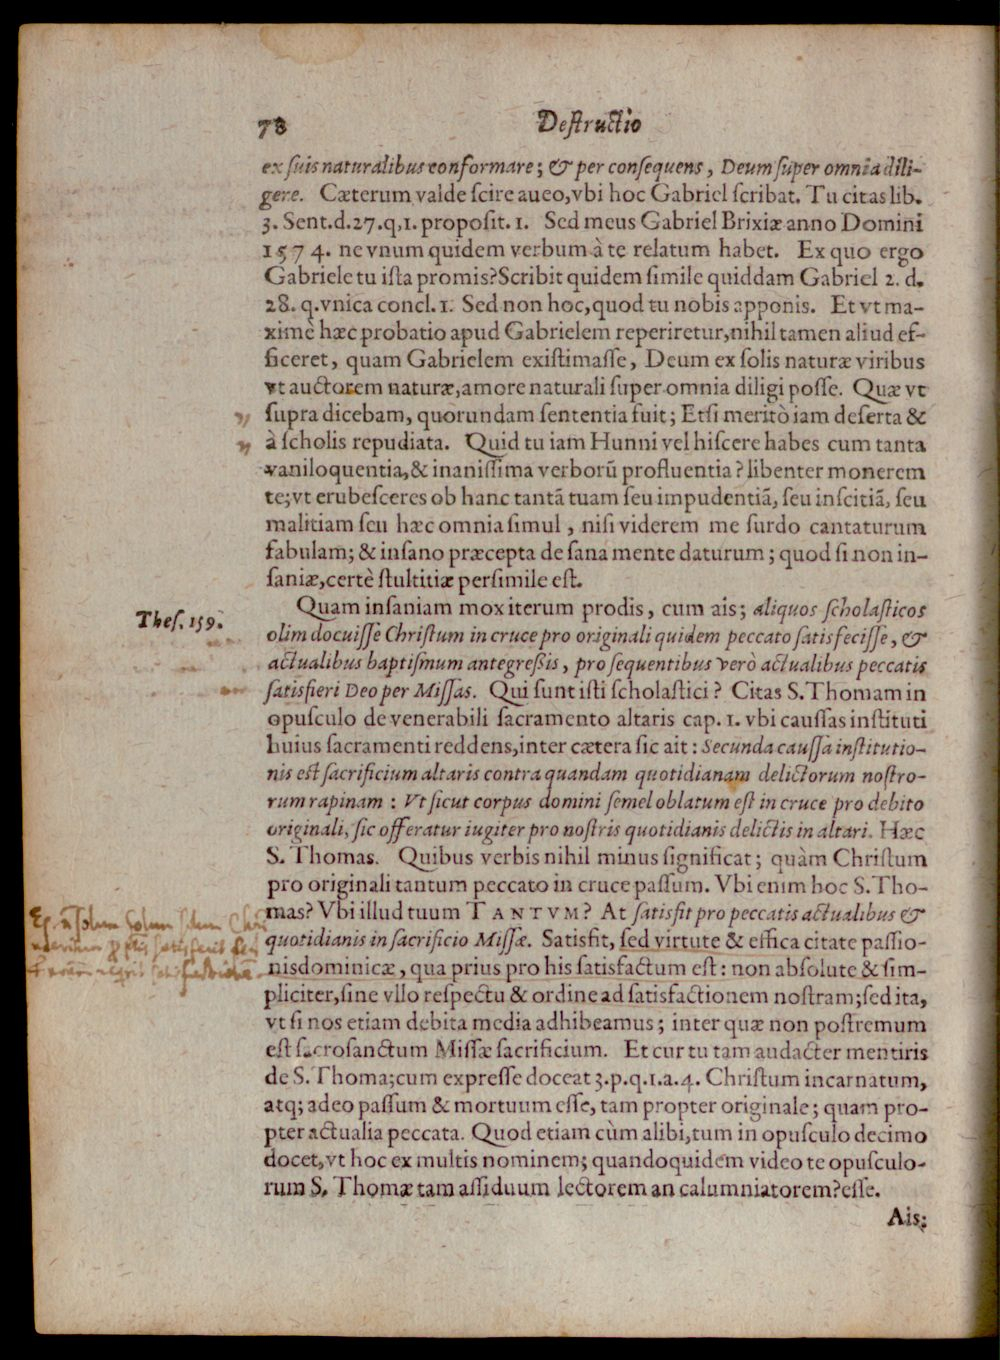 78 Destructio
ex suis naturalibus conformare; & per consequens, Deum super omnia dili-
gere. Cæterum valde scire aueo, vbi hoc Gabriel scribat. Tu citas lib.
3. Sent. d. 27. q, 1. proposit. 1. Sed meus Gabriel Brixiæ anno Domini
1574. ne vnum quidem verbum à te relatum habet. Ex quo ergo
Gabriele tu ista promis? Scribit quidem simile quiddam Gabriel 2. d.
28. q. vnica concl. 1. Sed non hoc, quod tu nobis apponis. Et vt ma-
ximè hæc probatio apud Gabrielem reperiretur, nihil tamen aliud ef-
ficeret, quam Gabrielem existimasse, Deum ex solis naturæ viribus
vt auctorem naturæ, amore naturali super omnia diligi posse. Quæ vt
supra dicebam, quorundam sententia fuit; Etsi meritò iam deserta &
à scholis repudiata. Quid tu iam Hunni vel hiscere habes cum tanta
vaniloquentia, & inanissima verborū profluentia? libenter monerem
te; vt erubesceres ob hanc tantā tuam seu impudentiā, seu inscitiā, seu
malitiam seu hæc omnia simul, nisi viderem me surdo cantaturum
fabulam; & insano præcepta de sana mente daturum; quod si non in-
saniæ, certè stultitiæ persimile est.
Thes. 159.
Quam insaniam mox iterum prodis, cum ais; aliquos scholasticos
olim docuisse Christum in cruce pro originali quidem peccato satisfecisse, &
actualibus baptismum antegressis, pro sequentibus verò actualibus peccatis
satisfieri Deo per Missas. Qui sunt isti scholastici? Citas S. Thomam in
opusculo de venerabili sacramento altaris cap. 1. vbi caussas instituti
huius sacramenti reddens, inter cætera sic ait: Secunda caussa institutio-
nis est sacrificium altaris contra quandam quotidianam delictorum nostro-
rum rapinam: Vt sicut corpus domini semel oblatum est in cruce pro debito
originali, sic offeratur iugiter pro nostris quotidianis delictis in altari. Hæc
S. Thomas. Quibus verbis nihil minus significat; quàm Christum
pro originali tantum peccato in cruce passum. Vbi enim hoc S. Tho-
mas? Vbi illud tuum TANTVM? At satisfit pro peccatis actualibus &
quotidianis in sacrificio Missæ. Satisfit, sed virtute & efficacitate passio-
nis dominicæ, qua prius pro his satisfactum est: non absolute & sim-
pliciter, sine vllo respectu & ordine ad satisfactionem nostram; sed ita,
vt si nos etiam debita media adhibeamus; inter quæ non postremum
est sacrosanctum Missæ sacrificium. Et cur tu tam audacter mentiris
de S. Thoma; cum expresse doceat 3. p. q. 1. a. 4. Christum incarnatum,
atq; adeo passum & mortuum esse, tam propter originale; quam pro-
pter actualia peccata. Quod etiam cùm alibi, tum in opusculo decimo
docet, vt hoc ex multis nominem; quandoquidem video te opusculo-
rum S. Thomæ tam assiduum lectorem an calumniatorem? esse.
Ais: